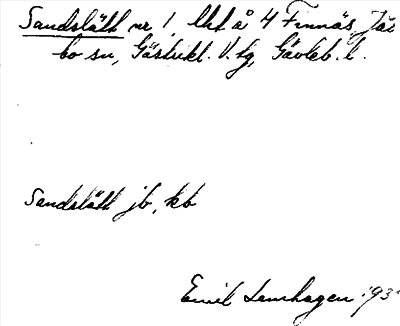 Sandslätt nr 1, lht å 4 Finnäs, Jäs
bo sn, Gästrikl. V. tg, Gävleb. l.
Sandslätt jb, kb
Emil Lamhagen 193